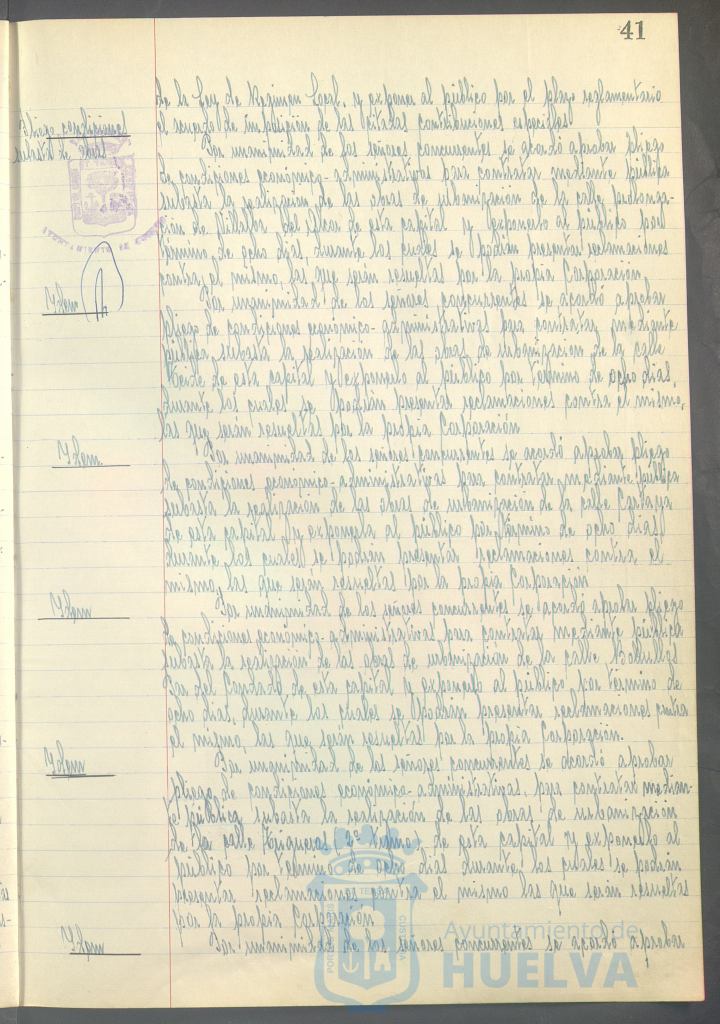 41
de la Ley de Regimen Local, y exponer al público por el plazo reglamentario
el acuerdo de imposición de las citadas contribuciones especiales
Pliego condiciones
subasta de
Por unanimidad de los señores concurrentes se acordó aprobar pliego
de condiciones económico-administrativas para contratar mediante pública
subasta la realización de las obras de urbanización de la calle prolonga-
ción de Villalba del Alcor de esta capital y exponerlo al público por
término de ocho dias, durante los cuales se podrán presentar reclamaciones
contra el mismo, las que serán resueltas por la propia Corporación.
Idem
Por unanimidad de los señores concurrentes se acordó aprobar
pliego de condiciones económico-administrativas para contratar mediante
pública subasta la realización de las obras de urbanización de la calle
de esta capital y exponerlo al público por término de ocho dias,
durante los cuales se podrán presentar reclamaciones contra el mismo,
las que serán resueltas por la propia Corporación
Idem
Por unanimidad de los señores concurrentes se acordó aprobar pliego
de condiciones económico-administrativas para contratar mediante pública
subasta la realización de las obras de urbanización de la calle Cartaya
de esta capital y exponerla al público por término de ocho dias
durante los cuales se podrán presentar reclamaciones contra el
mismo, las que serán resueltas por la propia Corporación
Idem
Por unanimidad de los señores concurrentes se acordó aprobar pliego
de condiciones económico-administrativas para contratar mediante pública
subasta la realización de las obras de urbanización de la calle Bollullos
Par del Condado de esta capital y exponerlo al público por término de
ocho dias, durante los cuales se podrán presentar reclamaciones contra
el mismo, las que serán resueltas por la propia Corporación.
Idem
Por unanimidad de los señores concurrentes se acordó aprobar
pliego de condiciones económico-administrativas, para contratar median-
te pública subasta la realización de las obras de urbanización
de la calle Trigueros (2º tramo) de esta capital y exponerlo al
público por término de ocho dias durante los cuales se podrán
presentar reclamaciones contra el mismo las que serán resueltas
por la propia Corporación
Idem
Por unanimidad de los señores concurrentes se acordó aprobar
Ayuntamiento de
HUELVA